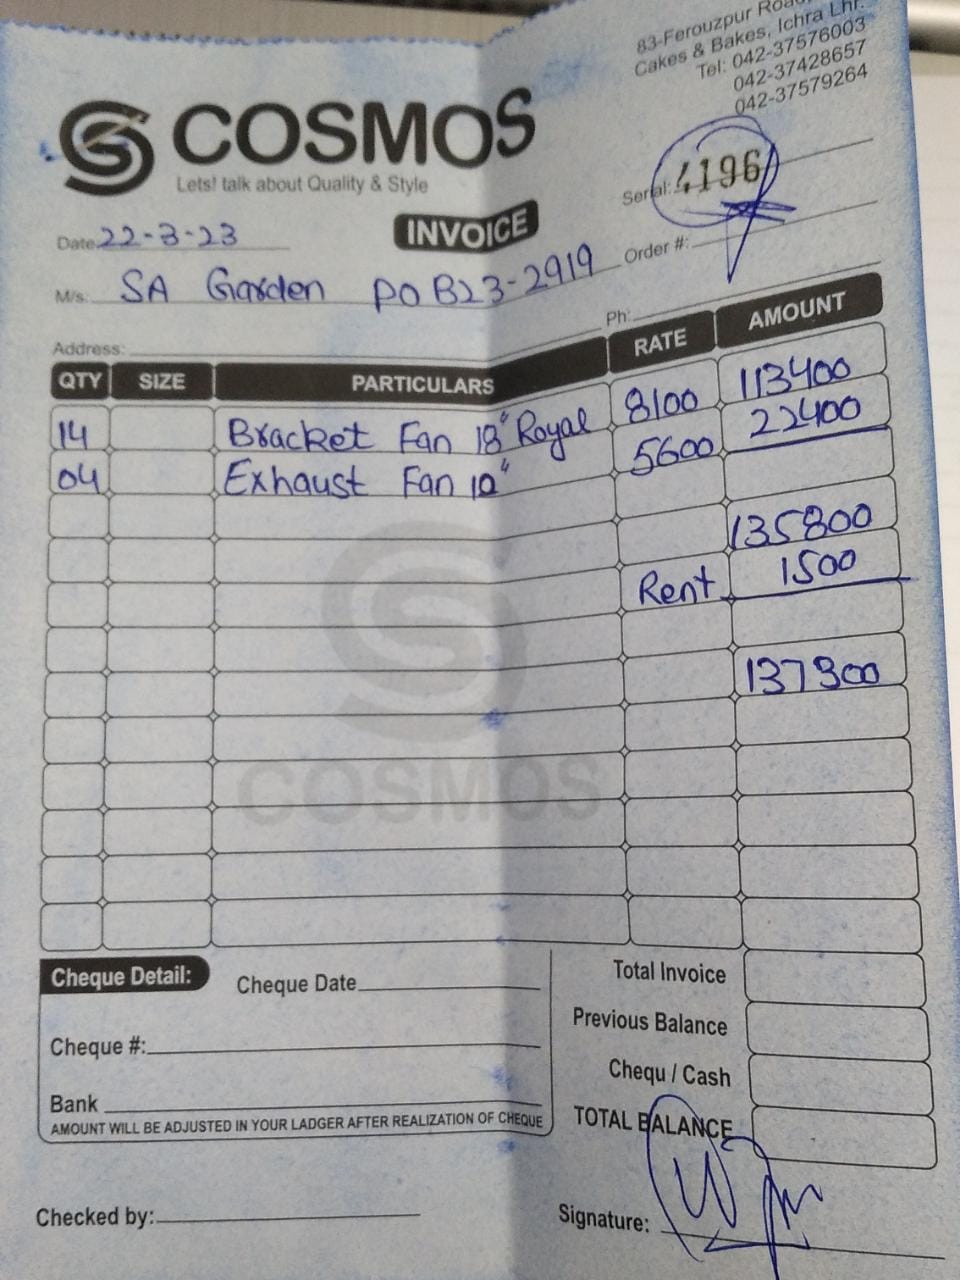 83-Ferouzpur Road,
Cakes & Bakes, Ichra Lhr.
Tel: 042-37576003
042-37428657
042-37579264
COSMOS
Lets! talk about Quality & Style
Serial: 4196
Date 22-3-23
INVOICE
Order #:
M/s: SA Garden PO B23-2919
Address: Ph:
QTY SIZE PARTICULARS RATE AMOUNT
14 Bracket Fan 18" Royal 8100 113400
04 Exhaust Fan 10" 5600 22400
135800
Rent 1500
137300
COSMOS
Cheque Detail: Cheque Date
Cheque #:
Bank
AMOUNT WILL BE ADJUSTED IN YOUR LADGER AFTER REALIZATION OF CHEQUE
Total Invoice
Previous Balance
Chequ / Cash
TOTAL BALANCE
Checked by:
Signature: